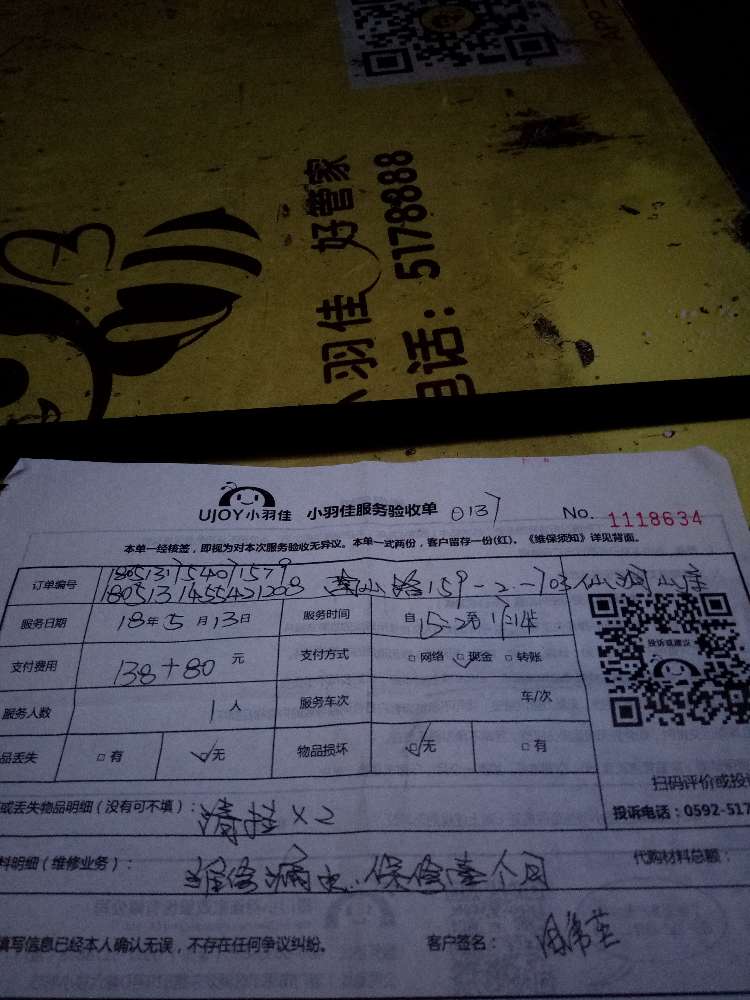 小羽佳 好管家
电话：5178888
UJOY小羽佳 小羽佳服务验收单 0137 No. 1118634
本单一经核签，即视为对本次服务验收无异议。本单一式两份，客户留存一份(红)。《维保须知》详见背面。
订单编号 1805131754071579
1805131455421203 159-2-703
服务日期 18年5月13日 服务时间 自15:2至17:14
支付费用 138+80 元 支付方式 □网络 ☑现金 □转账
投诉或建议
服务人数 1人 服务车次 车/次
品丢失 □有 ☑无 物品损坏 ☑无 □有
扫码评价或投
或丢失物品明细（没有可不填）： 清挂×2
投诉电话：0592-517
料明细（维修业务）： 维修漏电 保修壹个月
代购材料总额：
填写信息已经本人确认无误，不存在任何争议纠纷。 客户签名：